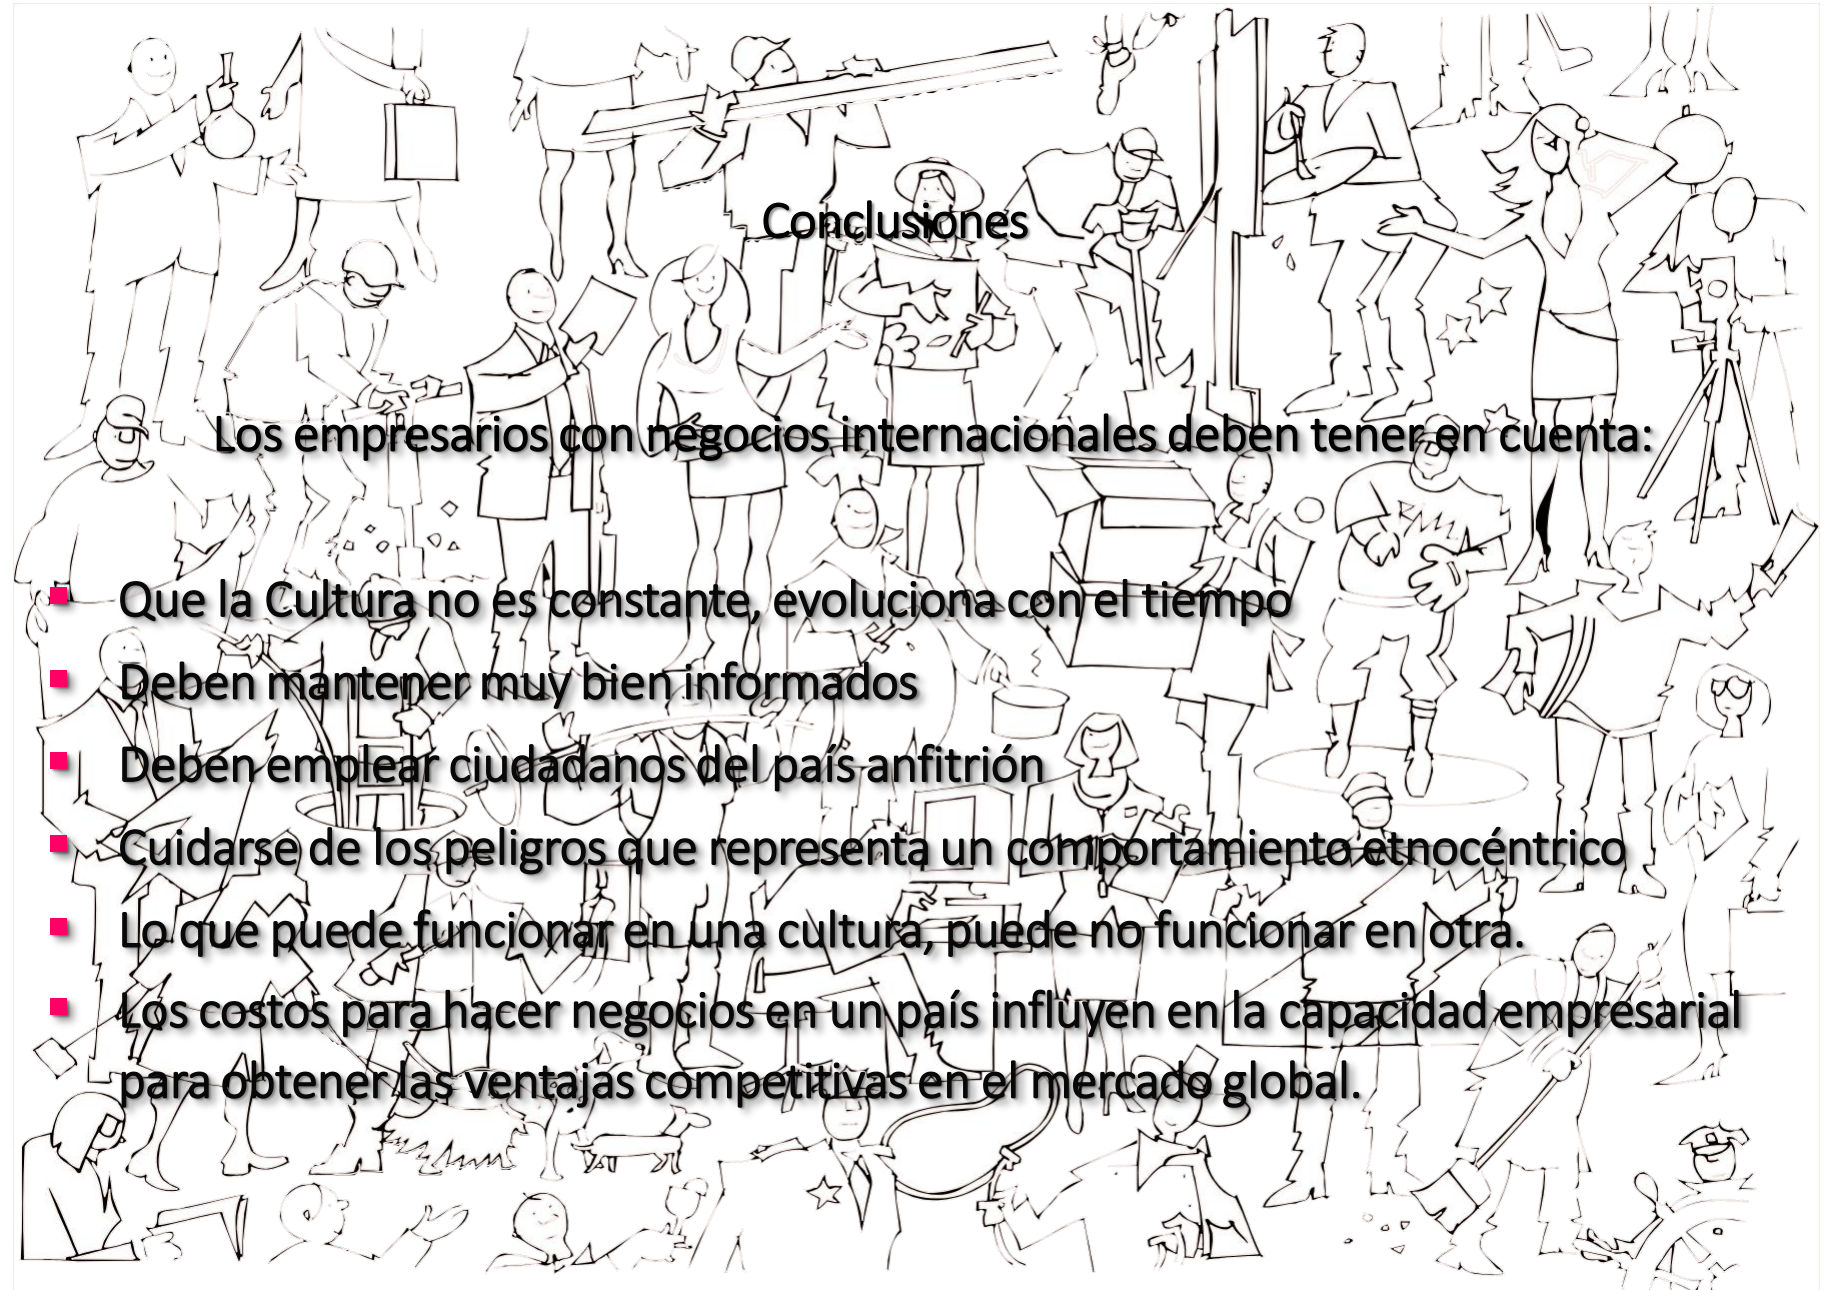 Conclusiones
Los empresarios con negocios internacionales deben tener en cuenta:
▪ Que la Cultura no es constante, evoluciona con el tiempo
▪ Deben mantener muy bien informados
▪ Deben emplear ciudadanos del país anfitrión
▪ Cuidarse de los peligros que representa un comportamiento etnocéntrico
▪ Lo que puede funcionar en una cultura, puede no funcionar en otra.
▪ Los costos para hacer negocios en un país influyen en la capacidad empresarial
para obtener las ventajas competitivas en el mercado global.